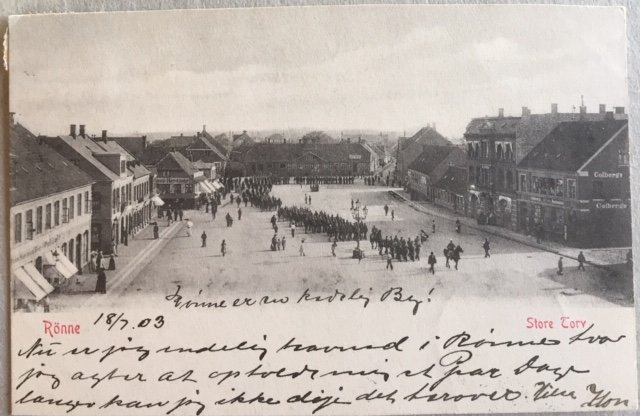 Colbergs
Colbergs
Rönne er en kedelig By!
Rönne 18/7. 03 Store Torv
Nu er jeg endelig havnet i Rønne hvor
jeg agter at opholde mig et Par Dage
længer kan jeg ikke døje det herover.